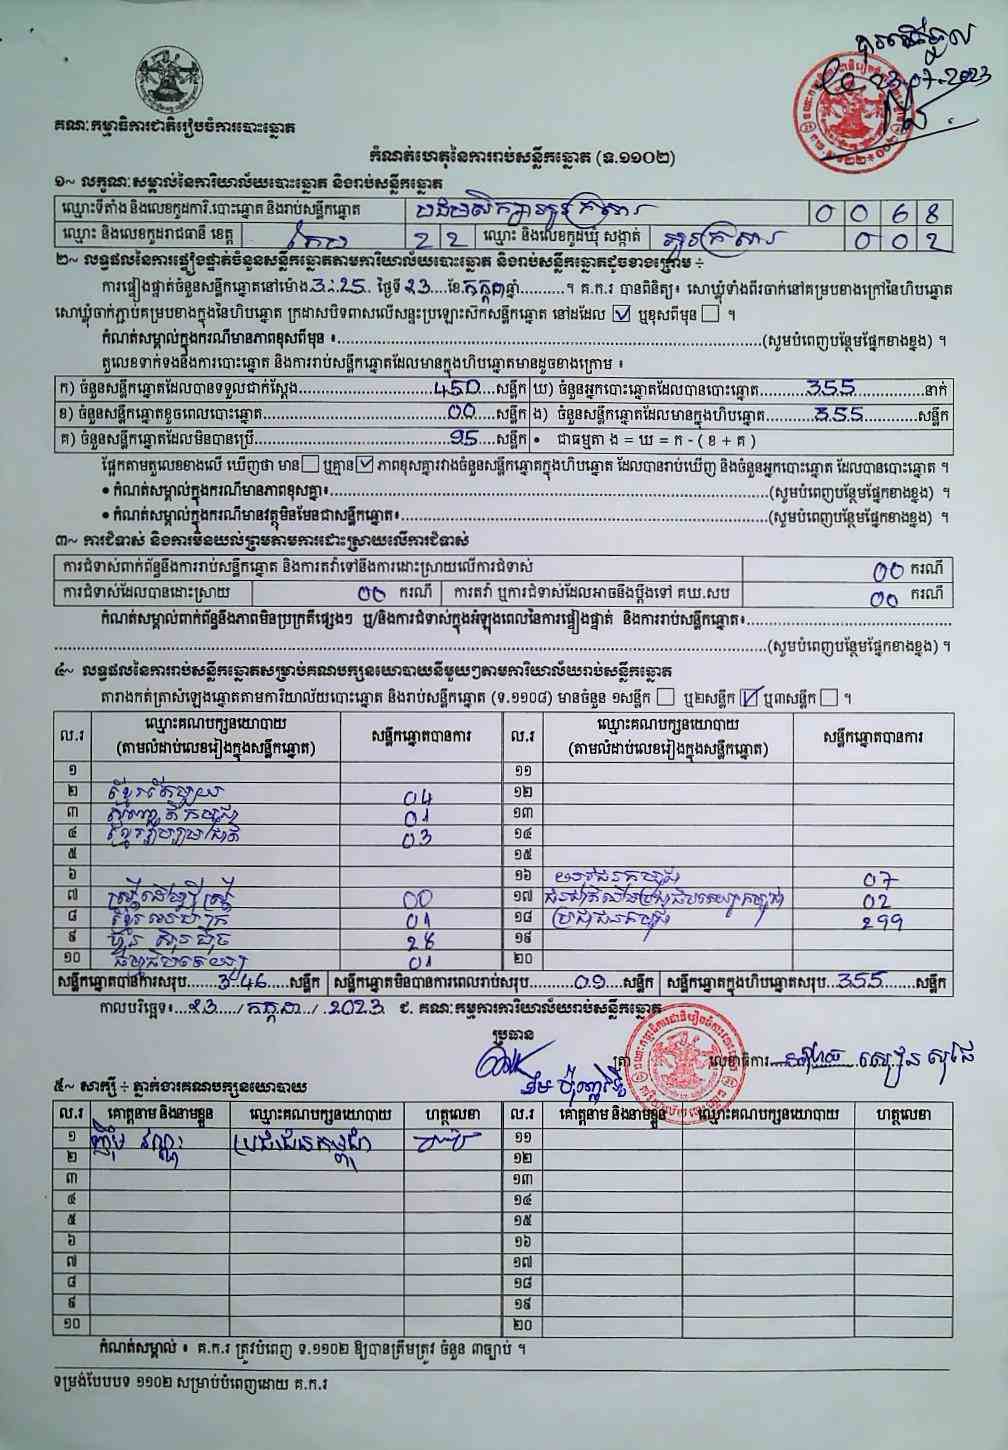 គណៈកម្មាធិការជាតិរៀបចំការបោះឆ្នោត
23.07.2023
កំណត់ហេតុនៃការរាប់សន្លឹកឆ្នោត (ទ.១១០២)
១~ លក្ខណៈសម្គាល់នៃការិយាល័យបោះឆ្នោត និងរាប់សន្លឹកឆ្នោត
ឈ្មោះទីតាំង និងលេខកូដការិ.បោះឆ្នោត និងរាប់សន្លឹកឆ្នោត 0 0 6 8
ឈ្មោះ និងលេខកូដរាជធានី ខេត្ត កែប 2 2 ឈ្មោះ និងលេខកូដឃុំ សង្កាត់ អូរក្រសារ 0 0 2
២~ លទ្ធផលនៃការផ្ទៀងផ្ទាត់ចំនួនសន្លឹកឆ្នោតតាមការិយាល័យបោះឆ្នោត និងរាប់សន្លឹកឆ្នោតដូចខាងក្រោម ÷
ការផ្ទៀងផ្ទាត់ចំនួនសន្លឹកឆ្នោតនៅម៉ោង 3:25 ថ្ងៃទី 23 ខែ កក្កដា ឆ្នាំ..........។ គ.ក.រ បានពិនិត្យ៖ សោឃ្លុំទាំងពីរចាក់នៅគម្របខាងក្រៅនៃហិបឆ្នោត
សោឃ្លុំចាក់ភ្ជាប់គម្របខាងក្នុងនៃហិបឆ្នោត ក្រដាសបិទពាសលើសន្ទះប្រឡោះសឹកសន្លឹកឆ្នោត នៅដដែល ☑ ឬខុសពីមុន ☐ ។
កំណត់សម្គាល់ក្នុងករណីមានភាពខុសពីមុន ៖..........(សូមបំពេញបន្ថែមផ្នែកខាងខ្នង) ។
តួលេខទាក់ទងនឹងការបោះឆ្នោត និងការរាប់សន្លឹកឆ្នោតដែលមានក្នុងហិបឆ្នោតមានដូចខាងក្រោម ៖
ក) ចំនួនសន្លឹកឆ្នោតដែលបានទទួលជាក់ស្តែង 450 សន្លឹក ឃ) ចំនួនអ្នកបោះឆ្នោតដែលបានបោះឆ្នោត 355 នាក់
ខ) ចំនួនសន្លឹកឆ្នោតខូចពេលបោះឆ្នោត 00 សន្លឹក ង) ចំនួនសន្លឹកឆ្នោតដែលមានក្នុងហិបឆ្នោត 355 សន្លឹក
គ) ចំនួនសន្លឹកឆ្នោតដែលមិនបានប្រើ 95 សន្លឹក • ជាធម្មតា ង = ឃ = ក - ( ខ + គ )
ផ្អែកតាមតួលេខខាងលើ ឃើញថា មាន ☐ ឬគ្មាន ☑ ភាពខុសគ្នារវាងចំនួនសន្លឹកឆ្នោតក្នុងហិបឆ្នោត ដែលបានរាប់ឃើញ និងចំនួនអ្នកបោះឆ្នោត ដែលបានបោះឆ្នោត ។
• កំណត់សម្គាល់ក្នុងករណីមានភាពខុសគ្នា៖..........(សូមបំពេញបន្ថែមផ្នែកខាងខ្នង) ។
• កំណត់សម្គាល់ក្នុងករណីមានវត្ថុមិនមែនជាសន្លឹកឆ្នោត៖..........(សូមបំពេញបន្ថែមផ្នែកខាងខ្នង) ។
៣~ ការជំទាស់ និងការមិនយល់ព្រមតាមការដោះស្រាយលើការជំទាស់
ការជំទាស់ពាក់ព័ន្ធនឹងការរាប់សន្លឹកឆ្នោត និងការតវ៉ាទៅនឹងការដោះស្រាយលើការជំទាស់ 00 ករណី
ការជំទាស់ដែលបានដោះស្រាយ 00 ករណី ការតវ៉ា ឬការជំទាស់ដែលអាចនឹងប្តឹងទៅ គឃ.សប 00 ករណី
កំណត់សម្គាល់ពាក់ព័ន្ធនឹងភាពមិនប្រក្រតីផ្សេងៗ ឬ/និងការជំទាស់ក្នុងអំឡុងពេលនៃការផ្ទៀងផ្ទាត់ និងការរាប់សន្លឹកឆ្នោត៖..........
..........(សូមបំពេញបន្ថែមផ្នែកខាងខ្នង) ។
៤~ លទ្ធផលនៃការរាប់សន្លឹកឆ្នោតសម្រាប់គណបក្សនយោបាយនីមួយៗតាមការិយាល័យរាប់សន្លឹកឆ្នោត
តារាងកត់ត្រាសំឡេងឆ្នោតតាមការិយាល័យបោះឆ្នោត និងរាប់សន្លឹកឆ្នោត (ទ.១១០៨) មានចំនួន ១សន្លឹក ☐ ឬ២សន្លឹក ☑ ឬ៣សន្លឹក ☐ ។
ល.រ ឈ្មោះគណបក្សនយោបាយ (តាមលំដាប់លេខរៀងក្នុងសន្លឹកឆ្នោត) សន្លឹកឆ្នោតបានការ ល.រ ឈ្មោះគណបក្សនយោបាយ (តាមលំដាប់លេខរៀងក្នុងសន្លឹកឆ្នោត) សន្លឹកឆ្នោតបានការ
១ ១១
២ 04 ១២
៣ 01 ១៣
៤ 03 ១៤
៥ ១៥
៦ ១៦ 07
៧ ស្ត្រីដើម្បីស្ត្រី 00 ១៧ 02
៨ 01 ១៨ ប្រជាជនកម្ពុជា 299
៩ 28 ១៩
១០ 01 ២០
សន្លឹកឆ្នោតបានការសរុប 346 សន្លឹក សន្លឹកឆ្នោតមិនបានការពេលរាប់សរុប 09 សន្លឹក សន្លឹកឆ្នោតក្នុងហិបឆ្នោតសរុប 355 សន្លឹក
កាលបរិច្ឆេទ៖ 23 / កក្កដា / 2023 ជ. គណៈកម្មការការិយាល័យរាប់សន្លឹកឆ្នោត
ប្រធាន
ត្រា លេខាធិការ
៥~ សាក្សី ÷ ភ្នាក់ងារគណបក្សនយោបាយ
ល.រ គោត្តនាម និងនាមខ្លួន ឈ្មោះគណបក្សនយោបាយ ហត្ថលេខា ល.រ គោត្តនាម និងនាមខ្លួន ឈ្មោះគណបក្សនយោបាយ ហត្ថលេខា
១ ប្រជាជនកម្ពុជា ១១
២ ១២
៣ ១៣
៤ ១៤
៥ ១៥
៦ ១៦
៧ ១៧
៨ ១៨
៩ ១៩
១០ ២០
កំណត់សម្គាល់ ៖ គ.ក.រ ត្រូវបំពេញ ទ.១១០២ ឱ្យបានត្រឹមត្រូវ ចំនួន ៣ច្បាប់ ។
ទម្រង់បែបបទ ១១០២ សម្រាប់បំពេញដោយ គ.ក.រ